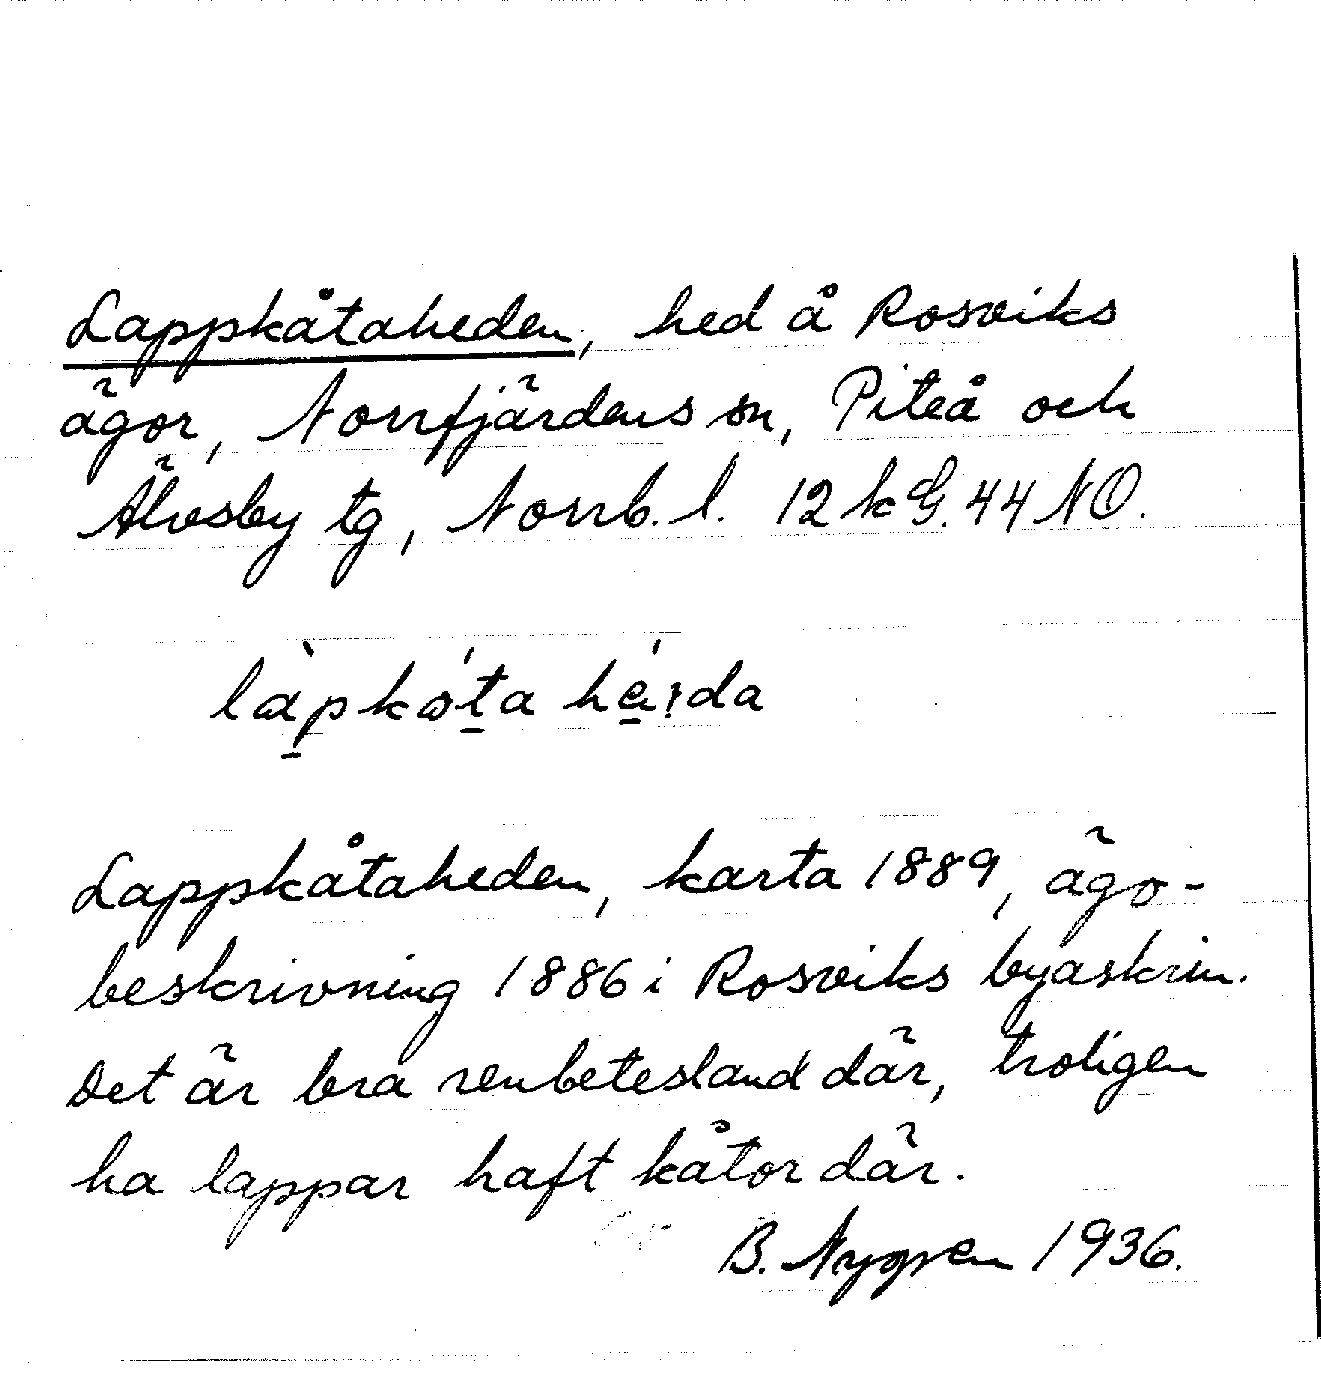 Lappkåtaheden, hed å Rosviks
ägor, Norrfjärdens sn, Piteå och
Älvsby tg, Norrb. l. 12 k G. 44 NO.
làpkȯ́ta hérda
Lappkåtaheden, karta 1889, ägo-
beskrivning 1886 i Rosviks byaskrin.
Det är bra renbetesland där, troligen
ha lappar haft kåtor där.
B. Nygren 1936.